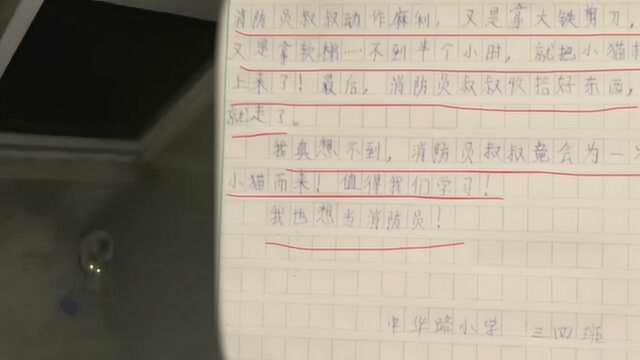 消防员叔叔动作麻利，又是拿大铁剪刀，
又是拿软梯……不到半个小时，就把小猫
上来了！最后，消防员叔叔收拾好东西，
就走了。
我真想不到，消防员叔叔竟会为一
小猫而来！值得我们学习！
我也想当消防员！
中华路小学 三四班